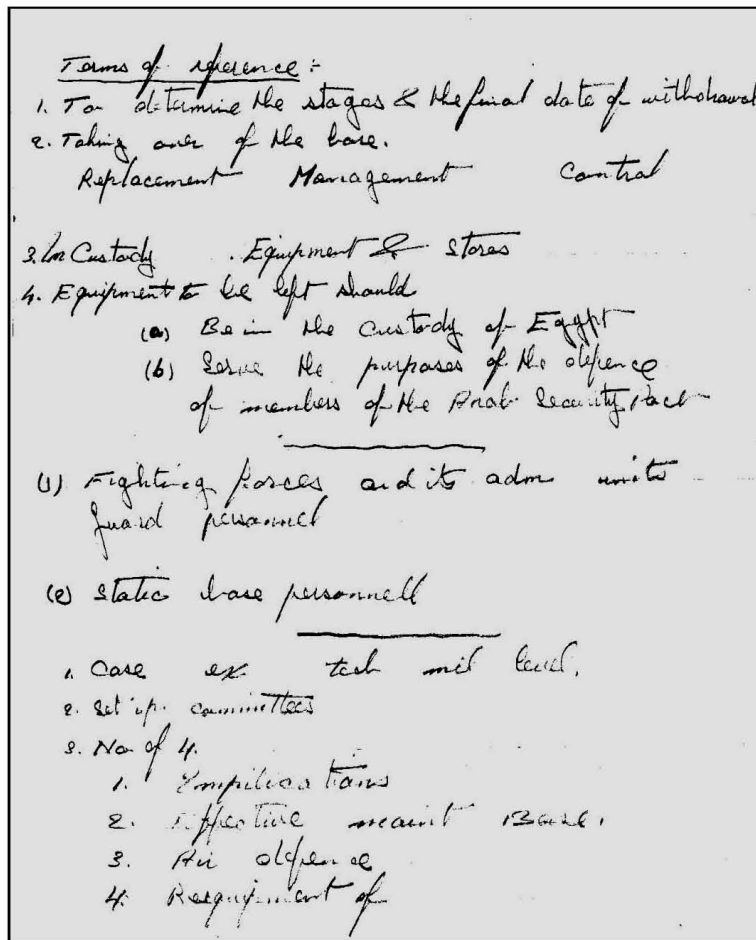 Terms of reference :-
1. To determine the stages & the final date of withdrawal
2. Taking over of the base.
Replacement Management Control
3. In Custody . Equipment & stores
4. Equipment to be left should
(a) Be in the Custody of Egypt
(b) Serve the purposes of the defence
of members of the Arab Security Pact
(1) Fighting forces and its adm units
guard personnel
(2) Static base personnell
1. Case ex tech mil level.
2. Set up committees
3. No of 4.
1. Implications
2. Effective maint Base.
3. Air defence
4. Reequipment of